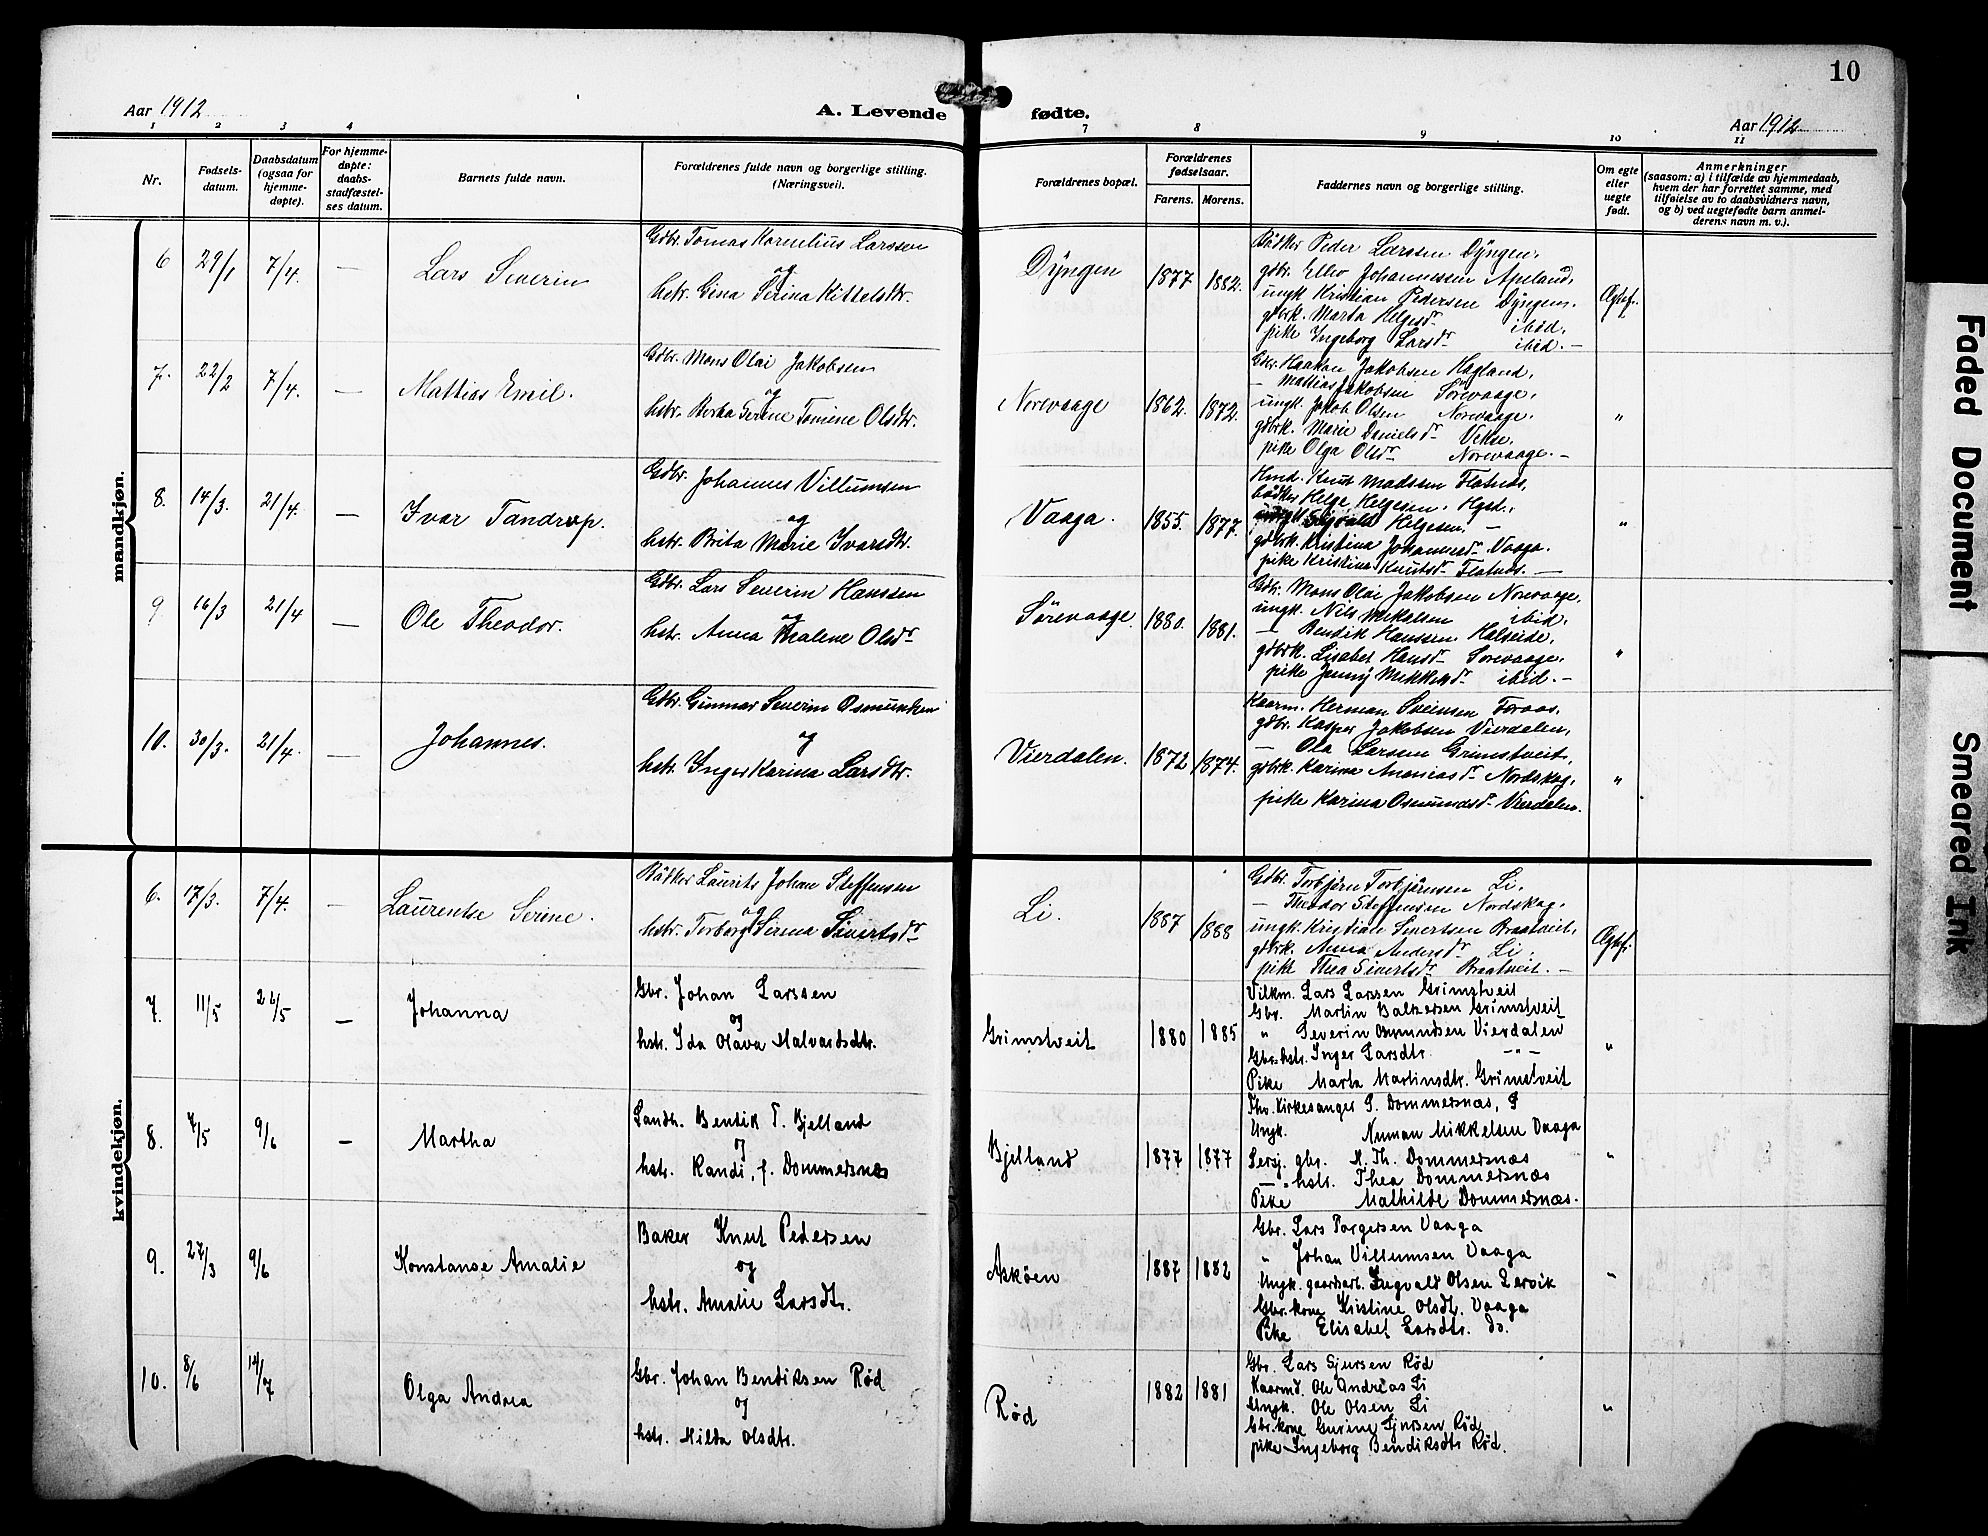 10
Aar 1912
A. Levende fødte.
Aar 1912
1 2 3 4 7 8 9 10 11
Nr.
Fødsels-
datum.
Daabsdatum
(ogsaa for
hjemme-
døpte).
For hjemme-
døpte:
daabs-
stadfæstel-
ses datum.
Barnets fulde navn.
Forældrenes fulde navn og borgerlige stilling.
(Næringsvei).
Forældrenes bopæl.
Forældrenes
fødselsaar.
Farens. Morens.
Faddernes navn og borgerlige stilling.
Om egte
eller
uegte
født.
Anmerkninger
(saasom: a) i tilfælde av hjemmedaab,
hvem der har forrettet samme, med
tilføielse av to daabsvidners navn,
og b) ved uegtefødte barn anmel-
derens navn m. v.).
mandkjøn.
6 29/1 7/4. — Lars Severin
Gdbr. Tomas Kornelius Larssen
og
hstr. Gina Serina Kittelsdtr.
Dÿngen 1877 1882.
Bødker Peder Larssen Dÿngen.
gdbr. Ellev Johannessen Apeland,
ungk. Kristian Pedersen Dÿngen.
gdbrk. Marta Helgesdr ibid.
pike Ingeborg Larsdr ibid. —
Ægtef.
7. 22/2 7/4. — Mattias Emil.
Gdbr. Mons Olai Jakobsen
og
hstr. Berta Serine Tomine Olsdtr.
Norevaage 1862. 1872.
Gdbr. Haakon Jakobsen Hagland,
— Mattias Jakobsen Sørevaage,
ungk. Jakob Olsen Norevaage.
gdbrk. Marie Danielsdr Vikse.
pike Olga Olsdr Norevaage. —
"
8. 14/3. 21/4. — Ivar Tandrup.
Gdbr. Johannes Villumsen
og
hstr. Brita Marie Ivarsdtr.
Vaaga. 1855. 1877.
Hmd. Knut Madssen Flatnes,
bødker Helge Helgesen,
Helgesen, —
gdbrk. Kristina Johannesdr Vaaga.
pike Kristine Knutsdr Flatnes. —
"
9. 16/3 21/4 — Ole Theodor.
Gdbr. Lars Severin Hanssen
og
hstr. Anna Malene Olsdr
Sørevaage. 1880. 1881.
Gdbr. Mons Olai Jakobsen Norevaage,
ungk. Nils Mikalsen ibid,
— Bendik Hanssen Halseide,
gdbrk. Lisabet Hansdr Sørevaage,
pike Jenny Mikkelsdr ibid. —
"
10. 30/3. 21/4. — Johannes.
Gdbr. Gunnar Severin Osmundsen
og
hstr. Inger Karina Larsdtr.
Vierdalen. 1872 1874.
Kaarm. Herman Sveinsen
gdbr. Kasper Jakobsen Vierdalen,
— Ola Larsen Grimstveit,
gdbrk. Karina Ananiasdr Nordskog,
pike Karina Osmundsdr Vierdalen.
"
kvindekjøn.
6. 17/3. 7/4. — Laurentse Serine.
Bødker Laurits Johan Steffensen
og
hstr. Torborg Serina Sivertsdr
Li. 1887 1888
Gdbr. Torbjørn Torbjørnsen Li,
— Theodor Steffensen Nordskog,
ungk. Kristian Sivertsen Braatveit,
gdbrk. Anna Andersdr Li.
pike Thea Sivertsdr Braatveit. —
Ægtef.
7. 11/5 /5 — Johanna
Gbr. Johan Larssen
og
hstr. Ida Olava Halvardsdtr.
Grimstveit 1880 1885
Vilkm. Lars Larssen Grimstveit
Gbr. Martin Baltsersen Grimstveit
" Severin Osmundsen Vierdalen
Gbr.hstr. Inger Larsdtr. —"—
Pike Marta Martinsdtr. Grimstveit
"
8. 7/5 9/6 — Martha
Landh. Bendik T. Bjelland
og
hstr. Randi, f. Dommersnæs
Bjelland 1877 1877
Kirkesanger S. Dommersnæs,
Ungk. Numan Mikkelsen Vaaga
Sersj. gbr. M. Th. Dommersnæs
—"— hstr. Thea Dommersnæs
Pike Mathilde Dommersnæs.
"
9. 27/3 9/6 Konstanse Amalie
Baker Knut Pedersen
og
hstr. Amalie Larsdtr.
Askøen 1887 1882
Gbr. Lars Torgersen Vaaga
" Johan Villumsen Vaaga
Ungk. gaardarb. Ingvald Olsen Lervik
Gbr.kone Kristine Olsdtr. Vaaga
Pike Elisabet Larsdtr. do.
"
10. 8/6 14/7 Olga Andrea
Gbr. Johan Bendiksen Rød
og
hstr. Hilda Olsdtr.
Rød 1882 1881
Gbr. Lars Sjursen Rød
Kaarmd. Ole Andreas Li
Ungk. Ole Olsen Li
Gbr.kone Gurine Sjursen Rød
pike Ingeborg Bendiksdtr Rød.
"
Faded Document
Smeared Ink